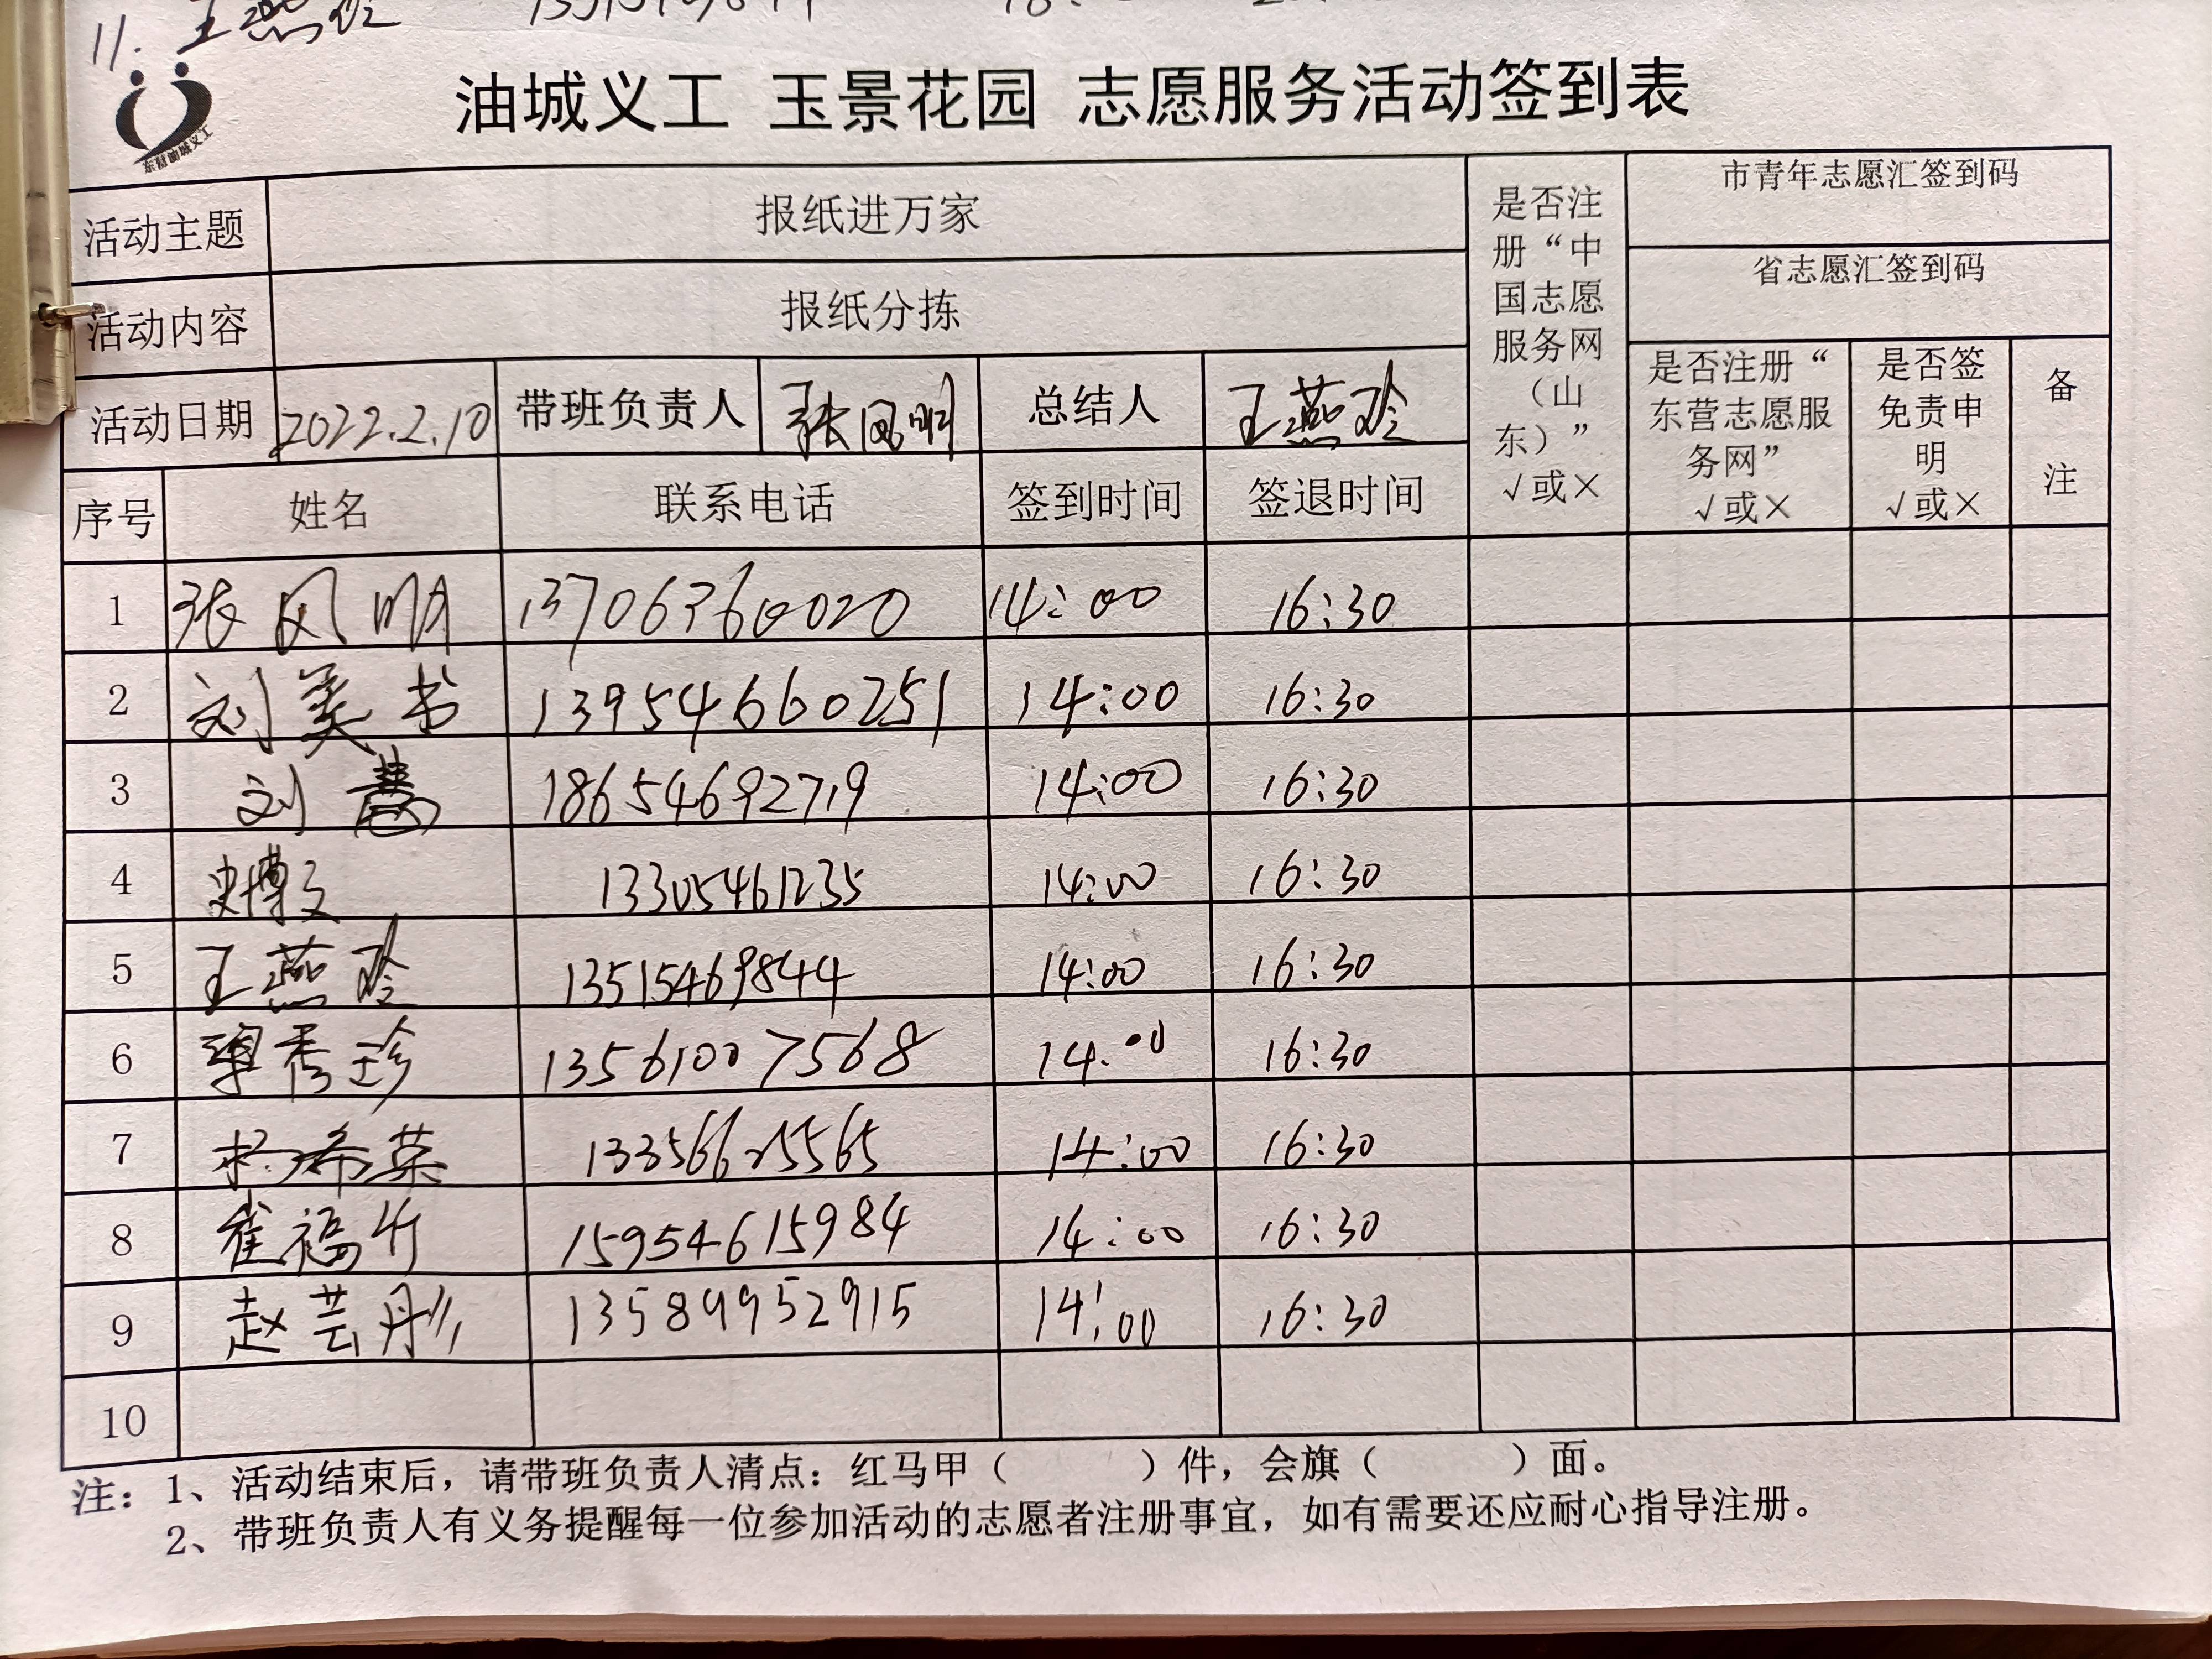 11. 王燕玲
东营油城义工
油城义工 玉景花园 志愿服务活动签到表
活动主题 报纸进万家
活动内容 报纸分拣
是否注册“中国志愿服务网(山东)” √或×
市青年志愿汇签到码
省志愿汇签到码
是否注册“东营志愿服务网” √或×
是否签免责申明 √或×
备注
活动日期 2022.2.10 带班负责人 张凤明 总结人 王燕玲
序号 姓名 联系电话 签到时间 签退时间
1 张凤明 13706360020 14:00 16:30
2 刘美书 13954660251 14:00 16:30
3 刘慧 18654692719 14:00 16:30
4 史博文 13305461235 14:00 16:30
5 王燕玲 13515469844 14:00 16:30
6 秀珍 13561007568 14:00 16:30
7 杨希荣 13356625565 14:00 16:30
8 崔福竹 15954615984 14:00 16:30
9 赵芸彤 13589952915 14:00 16:30
10
注:1、活动结束后,请带班负责人清点:红马甲( )件,会旗( )面。
2、带班负责人有义务提醒每一位参加活动的志愿者注册事宜,如有需要还应耐心指导注册。